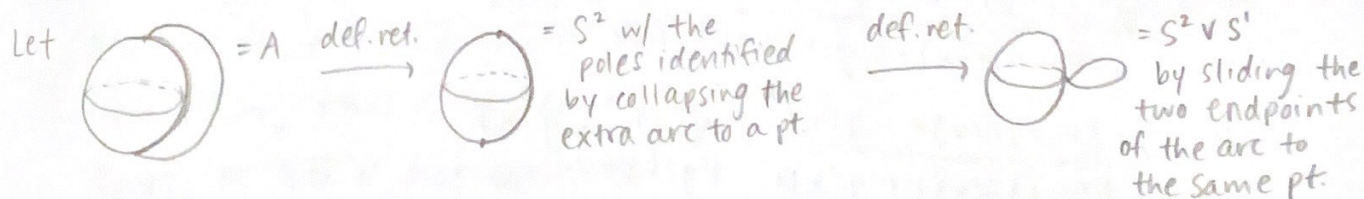 Let
= A
def. ret.
= S² w/ the
poles identified
by collapsing the
extra arc to a pt.
def. ret.
= S² ∨ S¹
by sliding the
two endpoints
of the arc to
the same pt.